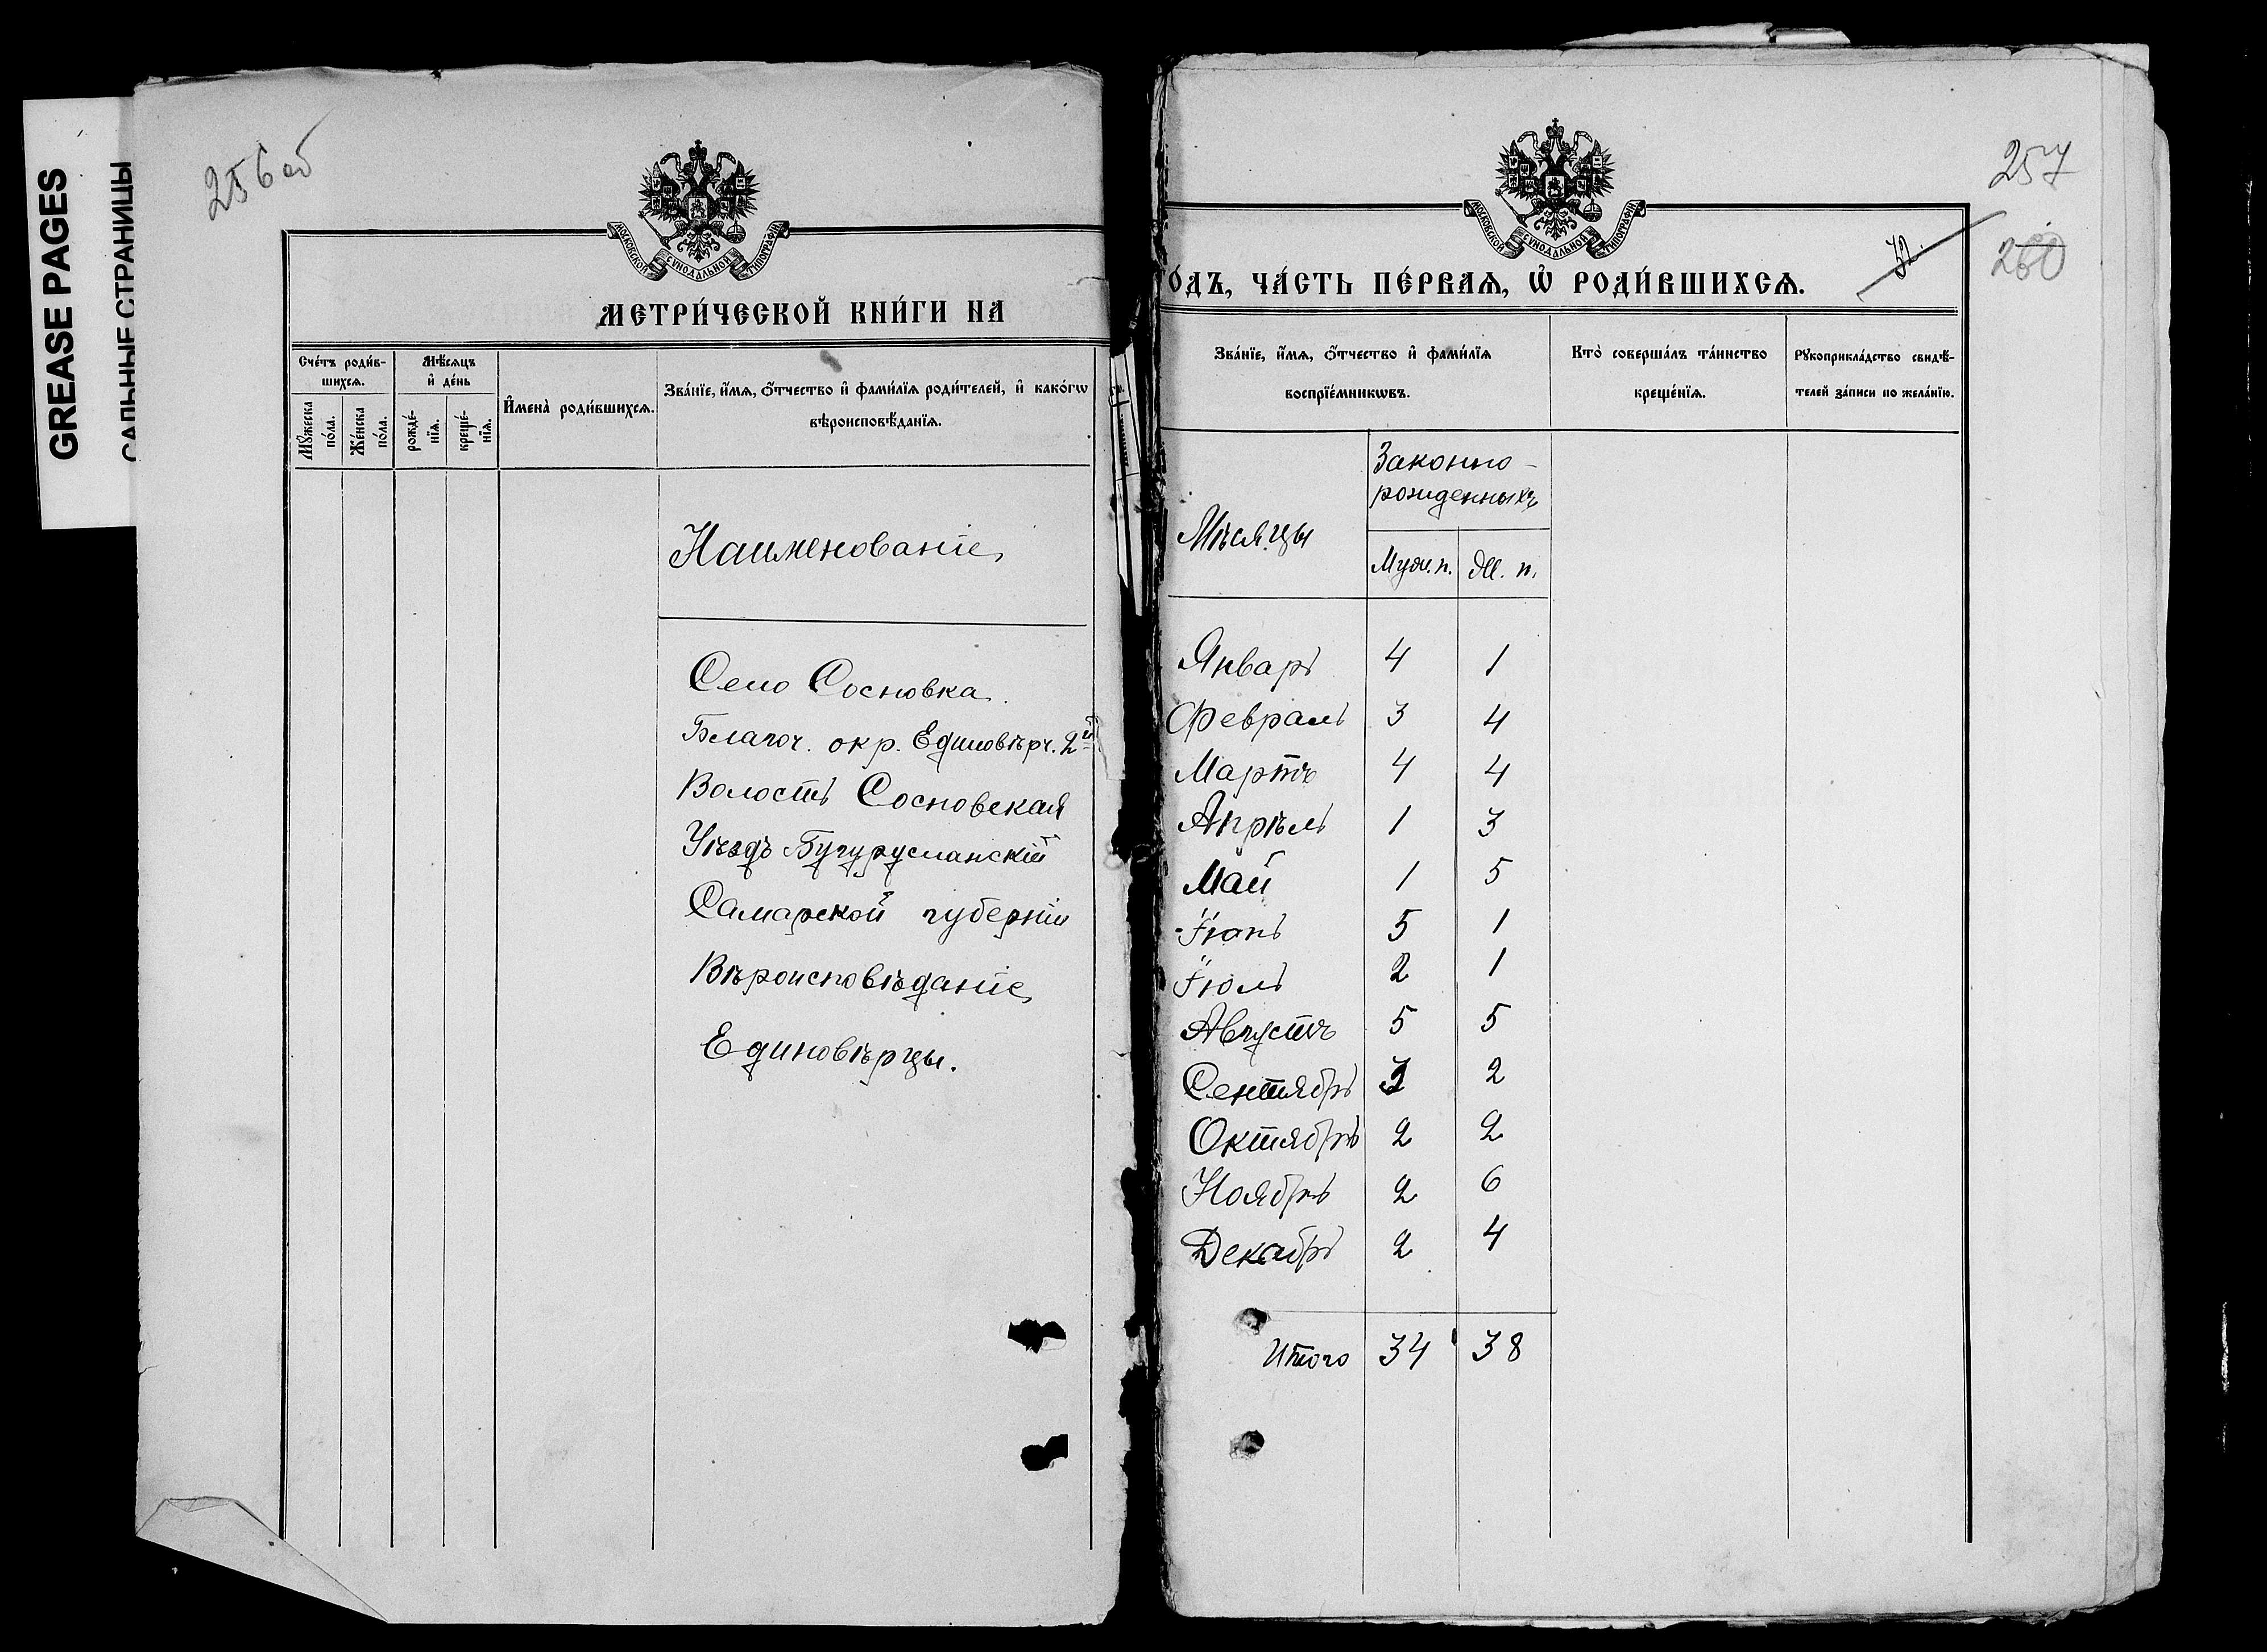 GREASE PAGES
САЛЬНЫЕ СТРАНИЦЫ
256 об
МОСКОВСКОЙ СУНОДАЛЬНОЙ ТИПОГРАФІИ
МЕТРИ́ЧЕСКОЙ КНИ́ГИ НА
Сче́тъ роди́в-
шихсѧ.
Мꙋ́жеска
по́ла.
Же́нска
по́ла.
Мѣ́сѧцъ
и҆ де́нь
рожде́-
нїѧ.
креще́-
нїѧ.
И҆мена̀ роди́вшихсѧ.
Зва́нїе, и҆́мѧ, ѻ҆́тчество и҆ фами́лїѧ роди́телей, и҆ како́гѡ
вѣроисповѣ́данїѧ.
Наименованіе
Село Сосновка.
Благоч. окр. Единовѣрч. 2й
Волость Сосновская
Уѣздъ Бугурусланскій
Самарской губерніи
Вѣроисповѣданіе
Единовѣрцы.
257
260
32.
МОСКОВСКОЙ СУНОДАЛЬНОЙ ТИПОГРАФІИ
О́ДЪ, ЧА́СТЬ ПЕ́РВАѦ, Ѡ҆ РОДИ́ВШИХСѦ.
Зва́нїе, и҆́мѧ, ѻ҆́тчество и҆ фами́лїѧ
воспрїе́мникѡвъ.
Кто̀ соверша́лъ та́инство
креще́нїѧ.
Рꙋкоприкла́дство свидѣ́-
телей за́писи по жела́нїю.
Мѣсяцы
Законно-
рожденныхъ
Муж. п. Ж. п.
Январь 4 1
Февраль 3 4
Мартъ 4 4
Апрѣль 1 3
Май 1 5
Іюнь 5 1
Іюль 2 1
Августъ 5 5
Сентябрь 3 2
Октябрь 2 2
Ноябрь 2 6
Декабрь 2 4
Итого 34 38